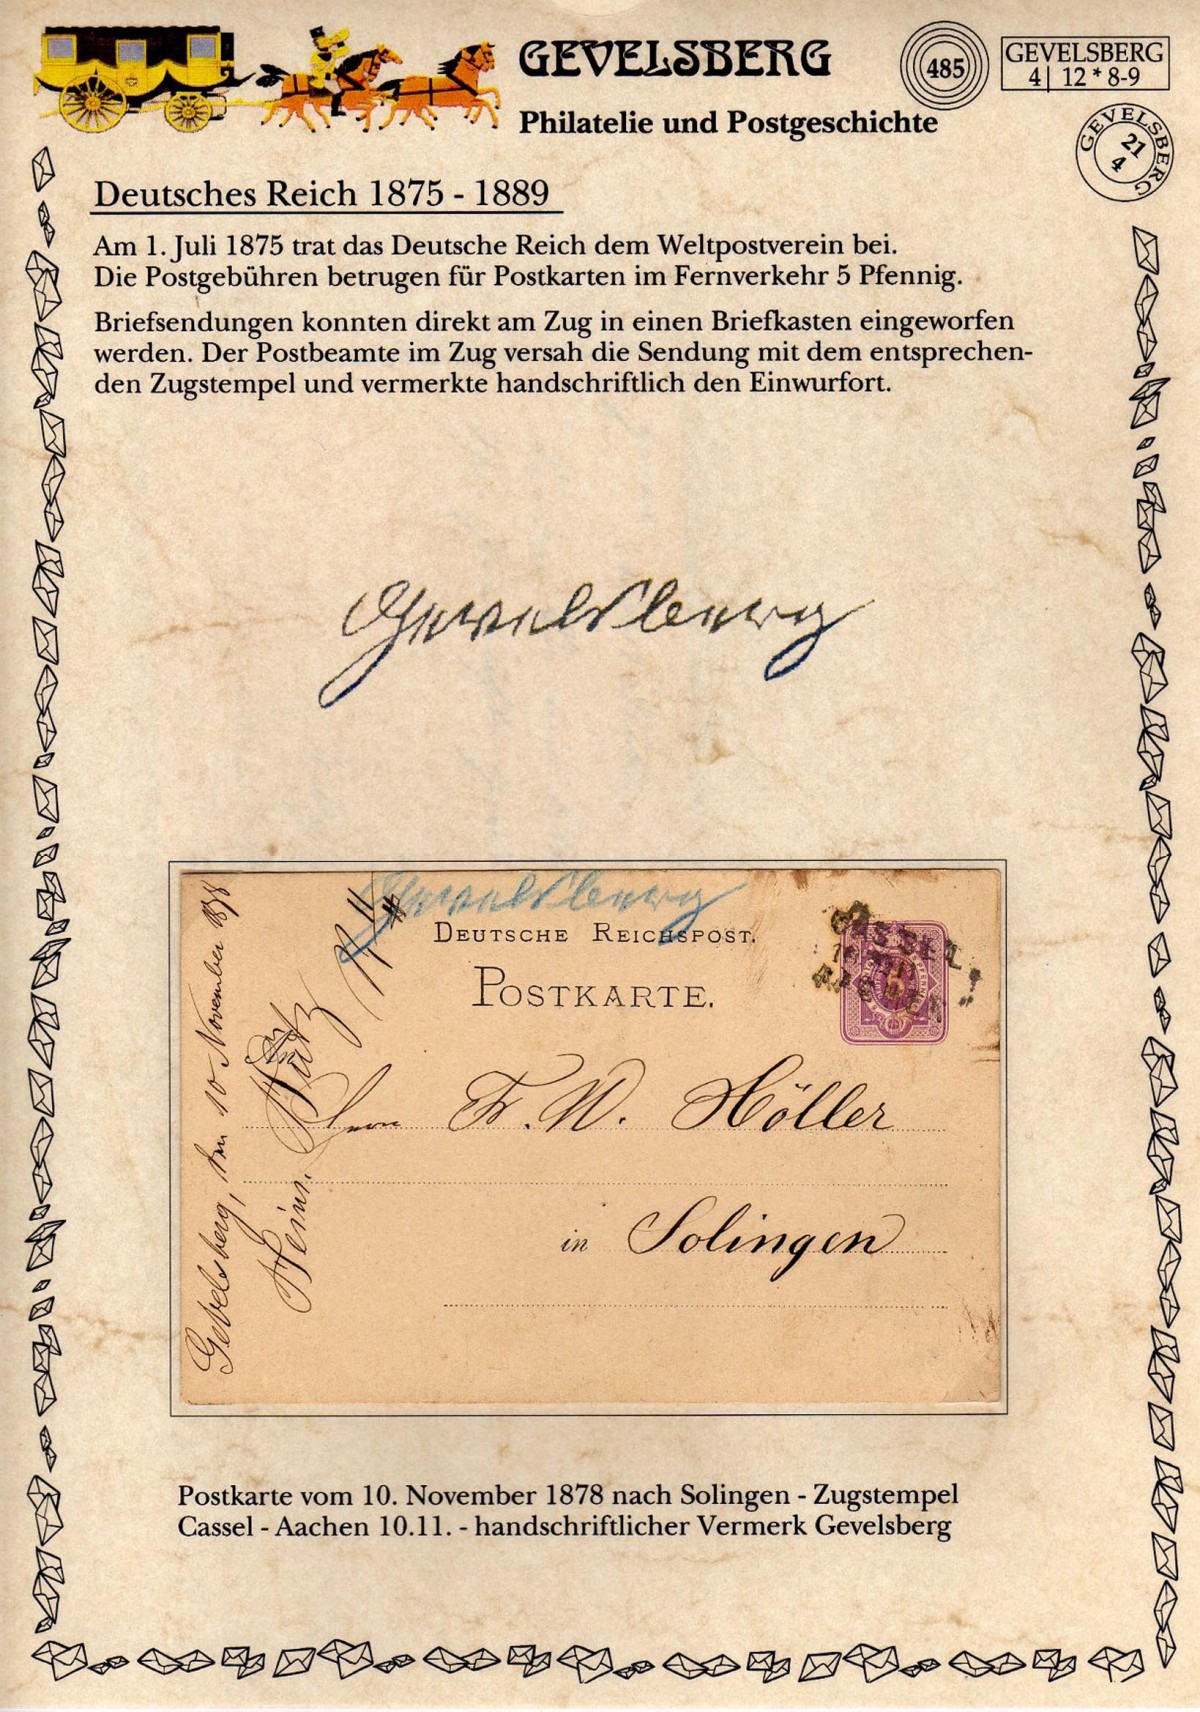 GEVELSBERG
Philatelie und Postgeschichte
485
GEVELSBERG
4| 12 * 8-9
GEVELSBERG
21
4
Deutsches Reich 1875 - 1889
Am 1. Juli 1875 trat das Deutsche Reich dem Weltpostverein bei.
Die Postgebühren betrugen für Postkarten im Fernverkehr 5 Pfennig.
Briefsendungen konnten direkt am Zug in einen Briefkasten eingeworfen
werden. Der Postbeamte im Zug versah die Sendung mit dem entsprechen-
den Zugstempel und vermerkte handschriftlich den Einwurfort.
Gevelsberg
Gevelsberg
DEUTSCHE REICHSPOST.
POSTKARTE.
CASSEL
Herrn Fr. W. Höller
in Solingen
Gevelsberg, den 10 November 1878
Heinr.
Postkarte vom 10. November 1878 nach Solingen - Zugstempel
Cassel - Aachen 10.11. - handschriftlicher Vermerk Gevelsberg